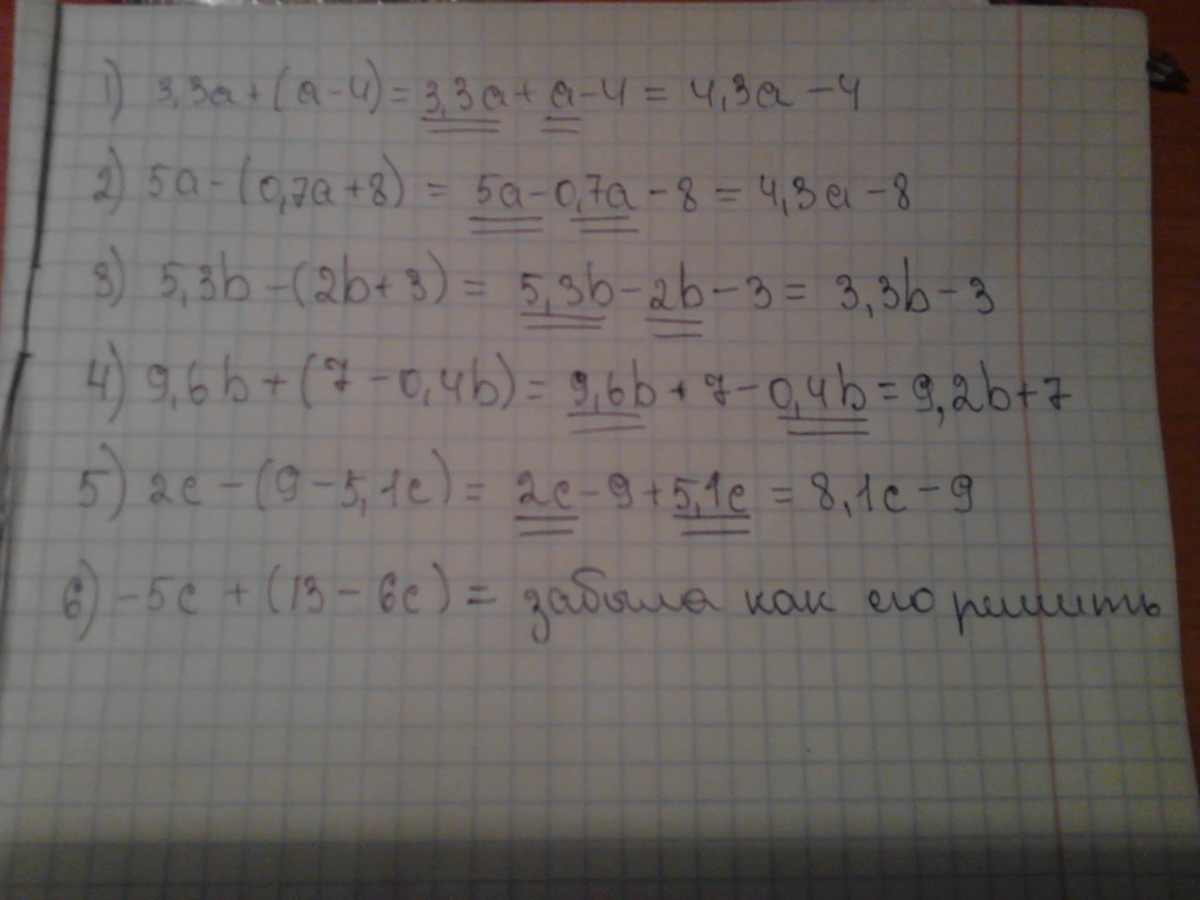 1) 3,3a + (a - 4) = 3,3a + a - 4 = 4,3a - 4
2) 5a - (0,7a + 8) = 5a - 0,7a - 8 = 4,3a - 8
3) 5,3b - (2b + 3) = 5,3b - 2b - 3 = 3,3b - 3
4) 9,6b + (7 - 0,4b) = 9,6b + 7 - 0,4b = 9,2b + 7
5) 2c - (9 - 5,1c) = 2c - 9 + 5,1c = 8,1c - 9
6) -5c + (13 - 6c) = забыла как его решить